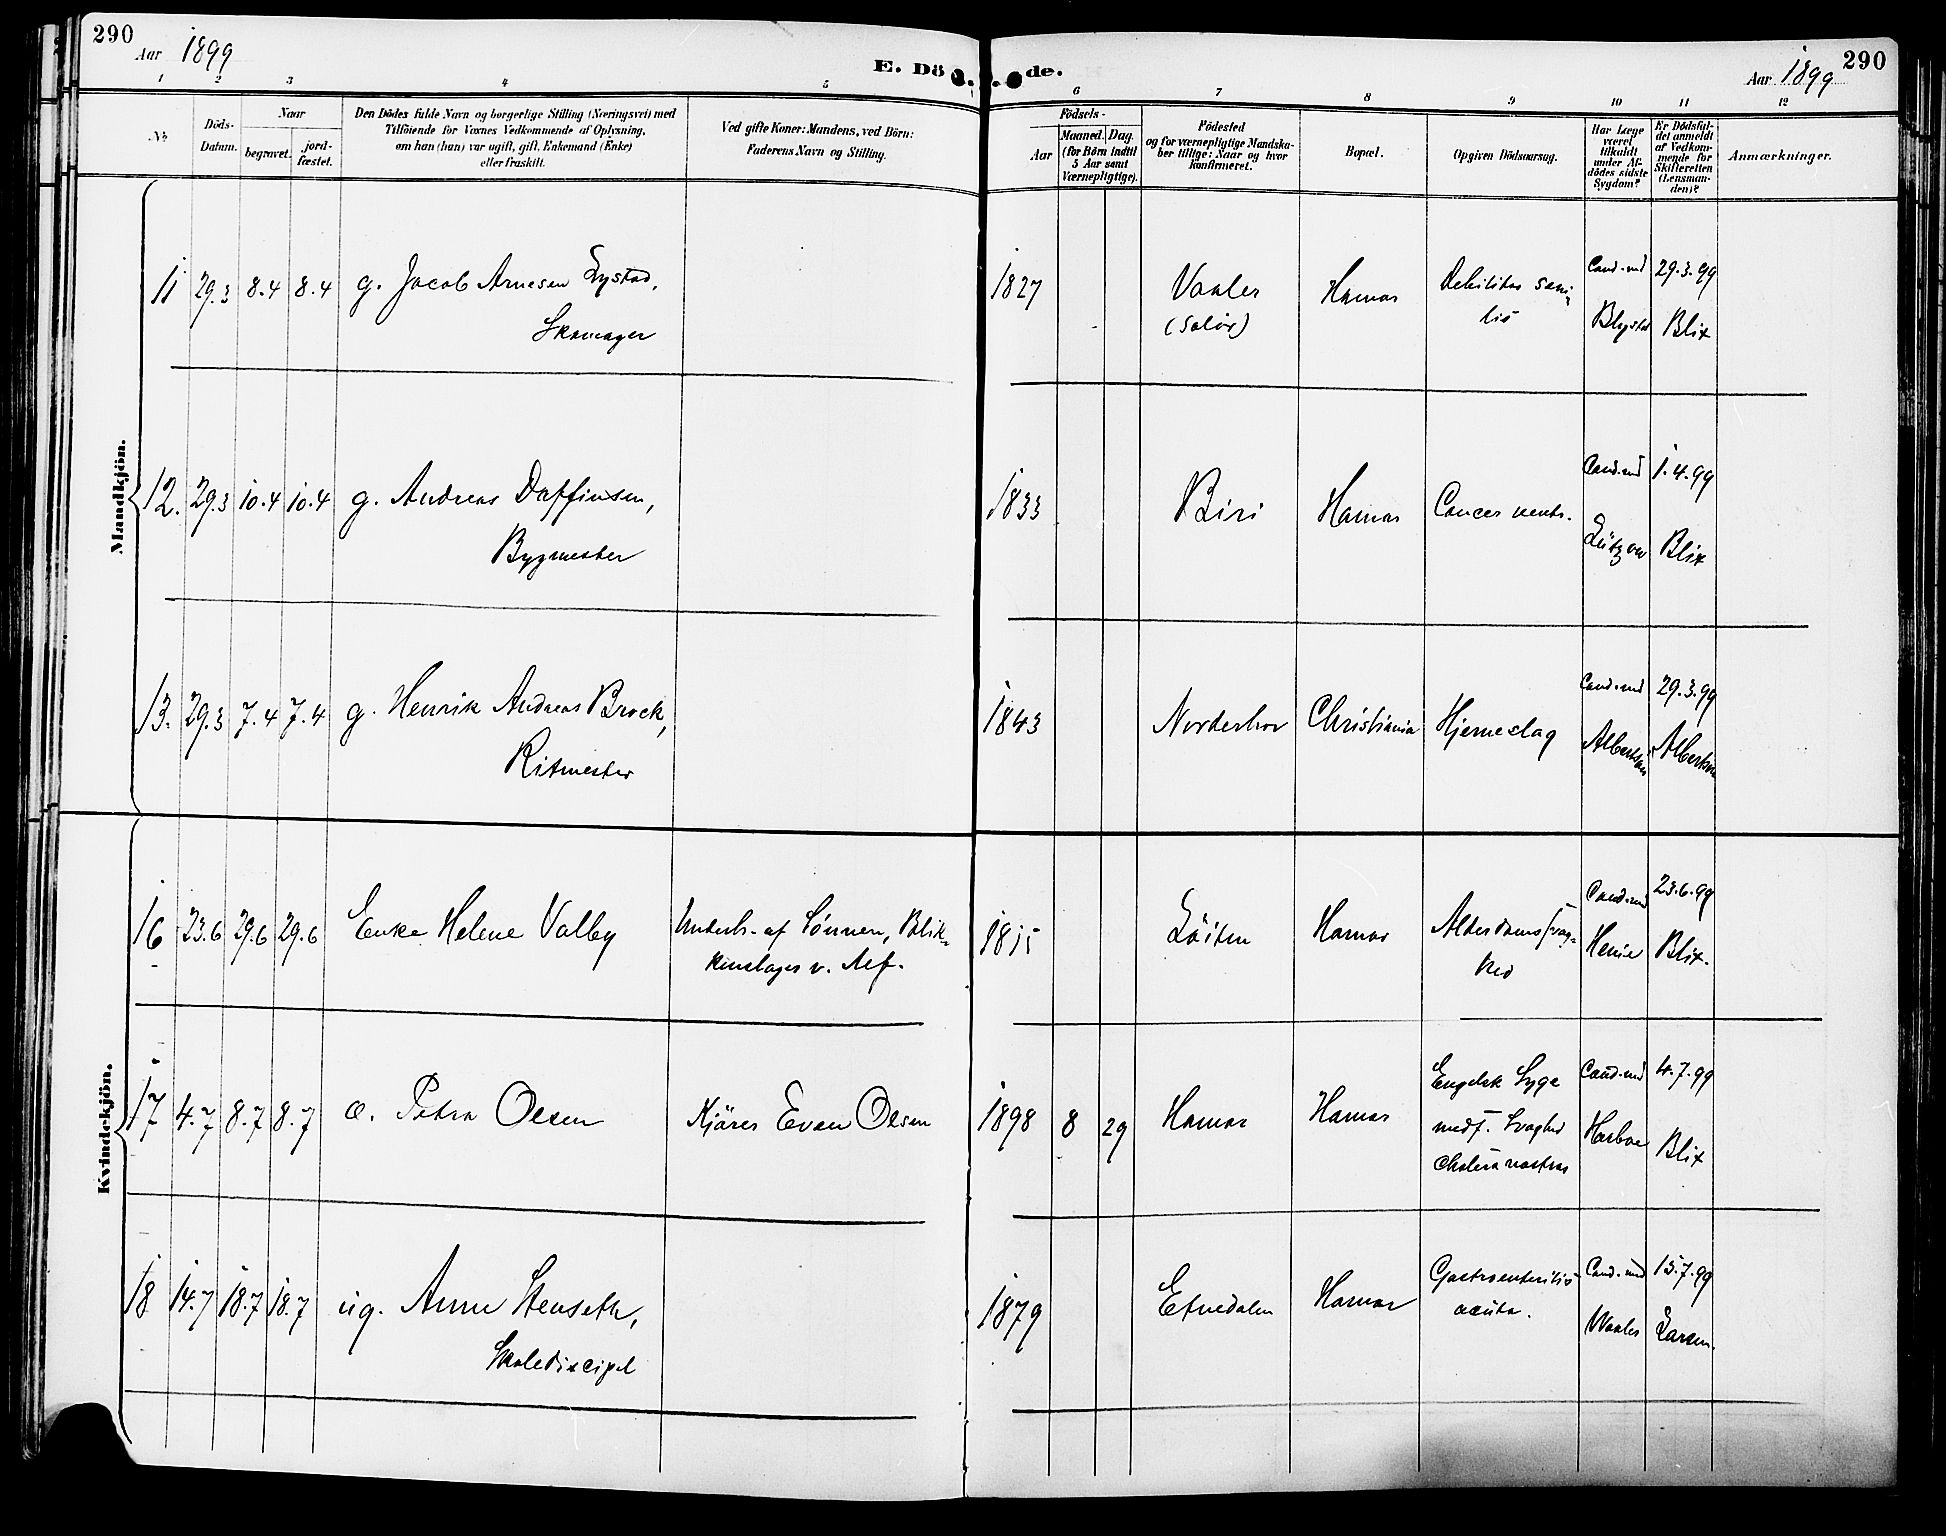 290
Aar 1899
E. Dö de.
Aar 1899
290
1 2 3 4 5 6 7 8 9 10 11 12
No
Döds-
Datum.
Naar
begravet.
jord-
fæstet.
Den Dödes fulde Navn og borgerlige Stilling (Næringsvei) med
Tilföiende for Voxnes Vedkommende af Oplysning,
om han (hun) var ugift, gift, Enkemand (Enke)
eller fraskilt.
Ved gifte Koner: Mandens, ved Börn:
Faderens Navn og Stilling.
Födsels-
Aar
Maaned. Dag.
(for Börn indtil
5 Aar samt
Værnepligtige).
Födested
og for værnepligtige Mandska-
ber tillige: Naar og hvor
konfirmeret.
Bopæl.
Opgiven Dödsaarsag.
Har Læge
været
tilkaldt
under Af-
dödes sidste
Sygdom?
Er Dödsfal-
det anmeldt
af Vedkom-
mende for
Skifteretten
(Lensman-
den)?
Anmærkninger.
Mandkjön.
11 29.3 8.4 8.4 g. Jacob Arnesen Lystad,
Skomager
1827 Vaaler
(Solør)
Hamar
Debilitas seni-
lis
Cand. md
Blystad
29.3.99
Blix
12. 29.3 10.4 10.4 g. Andreas Daffinsen,
Bygmester
1833 Biri Hamar Cancer ventr.
Cand. md
Lützow
1.4.99
Blix
13. 29.3 7.4 7.4 g. Henrik Andreas Brock,
Ritmester
1843 Norderhov Christiania Hjerneslag
Cand. md
Albertsen
29.3.99
Albertsen
Kvindekjön.
16 23.6 29.6 29.6 Enke Helene Valby
Underh. af Sönnen, Blik-
kenslager v. Alf.
1815 Löiten Hamar
Alderdomssvag-
hed
Cand. md
Henie
23.6.99
Blix.
17 4.7 8.7 8.7 a. Petra Olsen
Kjörer Even Olsen
1898 8 29 Hamar Hamar
Engelsk Syge
medf. Svaghed
cholera nostras
Cand. md
Harboe
4.7.99
Blix
18 14.7 18.7 18.7 ug. Anne Stenseth,
Skolediscipel
1879 Etnedalen Hamar
Gastroenteritis
acuta.
Cand. md
Waaler
15.7.99
Larsen.